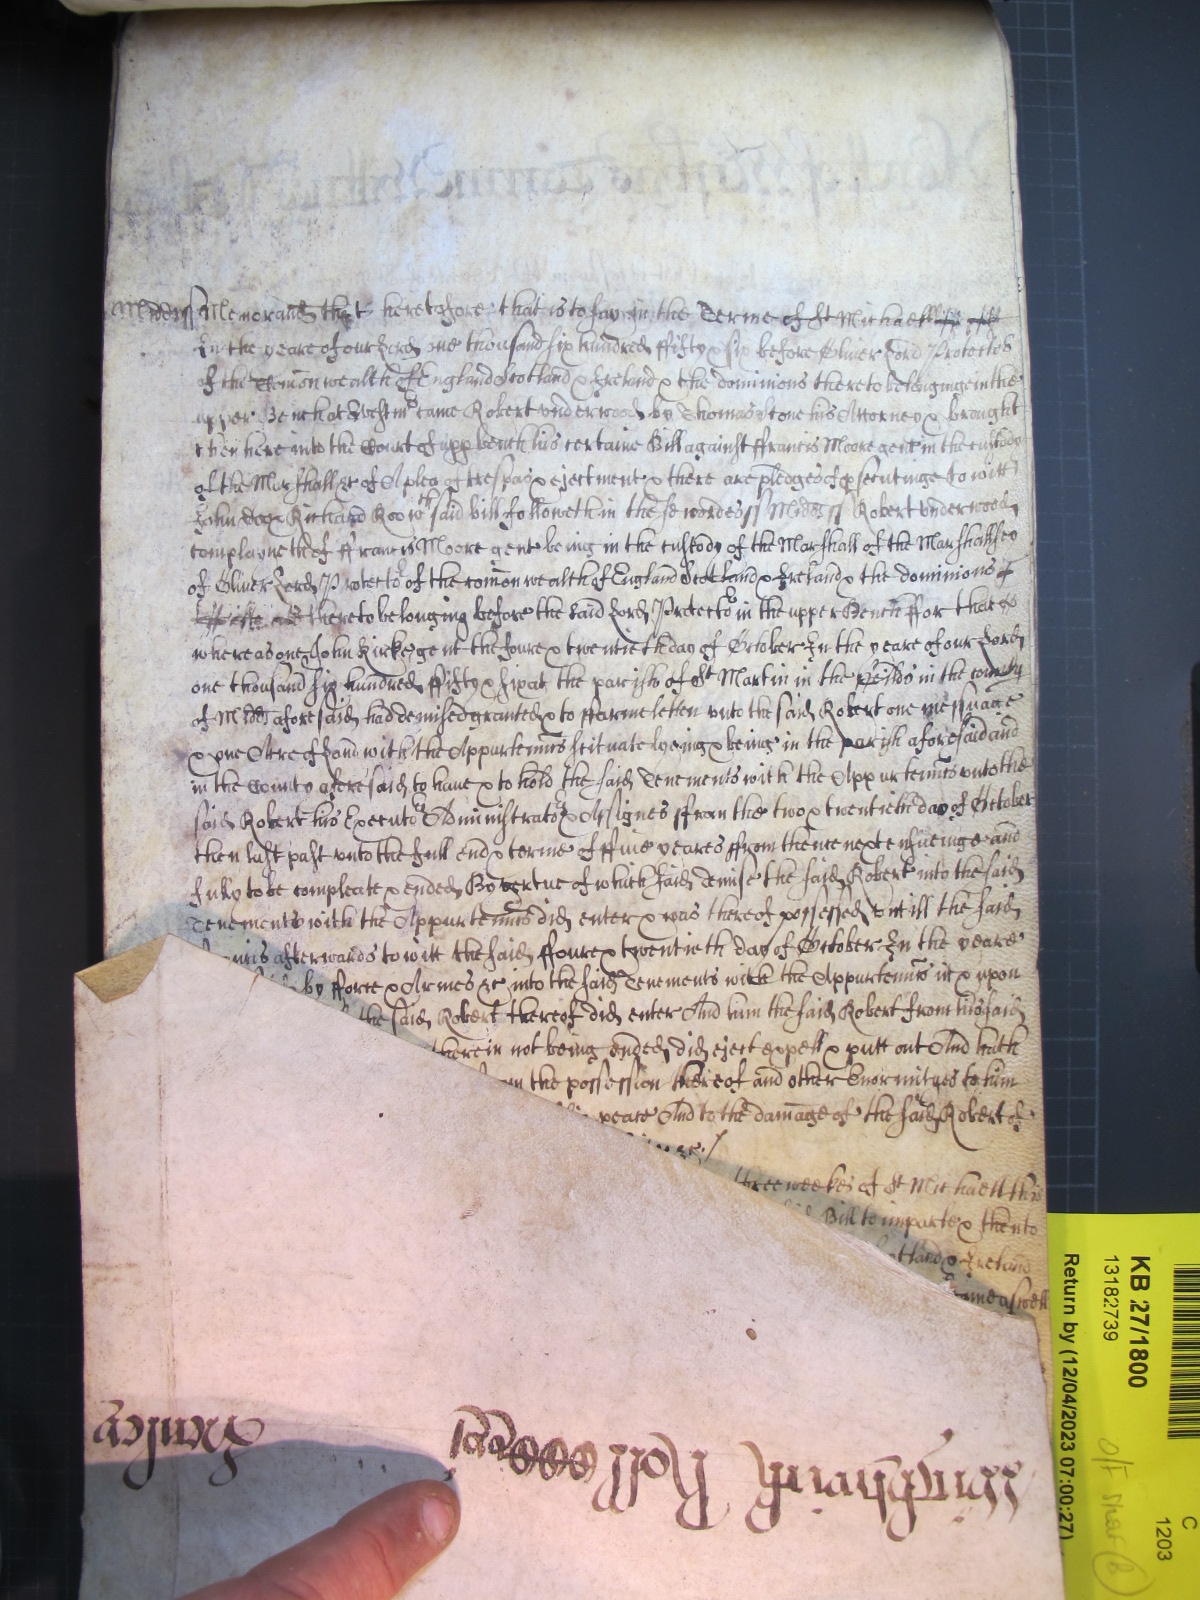 Midds ss Memorand that heretofore that is to say in the Terme of St Michaell
In the yeare of our Lord one thousand six hundred ffifty & six before Oliver Lord Protector
of the Comonwealth of England Scotland & Ireland & the dominions thereto belonginge in the
upper Bench at Westmr came Robert underwood by Thomas Stone his Attorney & brought
then here into the Court of upp bench his certaine Bill against ffrancis Moore gent in the custody
of the Marshall &c of A plea of trespas & ejectment & there are pledges of psecutinge to witt
John Doe & Richard Roo wch said bill followeth in these wordes ss Midds ss Robert underwood
complayneth of ffrancis Moore gent being in the custody of the Marshall of the Marshallsea
of Oliver Lord Protector of the comonwealth of England Scotland & Ireland & the dominions
thereto belonging before the said Lord Protector in the upper Bench ffor that
whereas one John Kirke gent the foure & twentieth day of October In the yeare of our Lord
one thousand six hundred ffifty & six at the parish of St Martin in the feilds in the county
of Midds aforesaid had demised granted & to ffarme letten unto the said Robert one messuage
& one Acre of Land with the Appurtennces scituate lyeing & being in the parish aforesaid and
in the County aforesaid to have & to hold the said Tenements with the Appurtennces unto the
said Robert his Executors Administrators & Assignes ffrom the two & twentieth day of October
then last past unto the full end & terme of ffive yeares ffrom thence next ensueinge and
fully to be compleate & ended By vertue of which said Demise the said Robert into the said
Tenements with the Appurtennces did enter & was thereof possessed Untill the said
afterwards to witt the said ffoure & twentieth day of October In the yeare
by fforce & Armes &c into the said Tenements with the Appurtennces in & upon
the said Robert thereof did enter And him the said Robert from his said
therein not being ended did eject expell & putt out And hath
the possession thereof and other Enormityes to him
peace And to the damage of the said Robert of
three weekes of St Michaell this
Bill to imparle & then to
& Ireland
came aswell
Hmitcy
Roll
KB 27/1800
13182739
Return by (12/04/2023 07:00:27)
C
1203